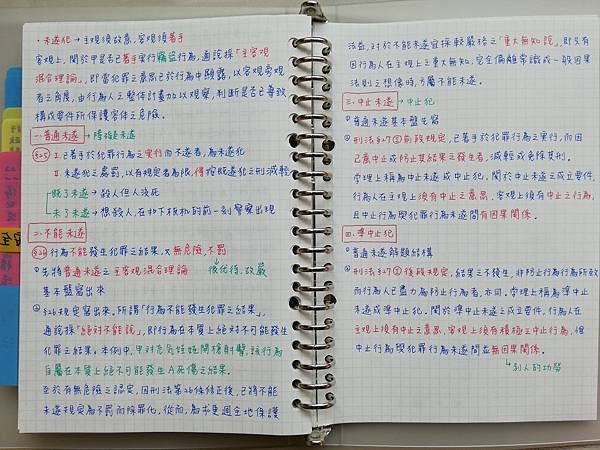 ・未遂犯→主觀須故意,客觀須著手
客觀上,關於甲是否已著手實行竊盜行為,通說採「主客觀
混合理論」,即當犯罪之意思已於行為中顯露,以客觀旁觀
者之角度,由行為人之整体計畫加以觀察,判斷是否已導致
構成要件所保護客体之危險。
一.普通未遂→障礙未遂
§25 I.已著手於犯罪行為之實行而不遂者,為未遂犯
II.未遂犯之處罰,以有規定者為限,得按既遂犯之刑減輕
既了未遂→殺人但人沒死
未了未遂→想殺人,在扣下板机的前一刻警察出現
二.不能未遂
§26 行為不能發生犯罪之結果,又無危險,不罰
先將普通未遂之主客觀混合理論
很优待,故嚴
基本盤寫出來
§26規定寫出來。所謂「行為不能發生犯罪之結果」,
通說採「絕対不能說」,即行為在本質上絕対不可能發生
犯罪之結果。本例中,甲対
開槍射擊,該行為
自屬在本質上絕不可能發生A死傷之結果。
至於有無危險之認定,因刑法第26條修正後,已將不能
未遂規定為不罰而除罪化,從而,為求更週全地保護
法益,対於不能未遂宜採較嚴格之「重大無知說」,即只有
因行為人在主觀上之重大無知,完全偏離常識或一般因果
法則之想像時,方屬不能未遂。
三.中止未遂→中止犯
普通未遂基本盤先寫
刑法§27①前段規定,已著手於犯罪行為之實行,而因
己意中止或防止其結果之發生者,減輕或免除其刑。
學理上稱為中止未遂或中止犯。關於中止未遂之成立要件,
行為人在主觀上須有中止之意思、客觀上須有中止之行為,
且中止行為與犯罪行為未遂間有因果關係。
四.準中止犯
普通未遂解題結構
刑法§27①後段規定,結果之不發生,非防止行為所致
而行為人已盡力為防止行為者,亦同。學理上稱為準中止
未遂或準中止犯。關於準中止未遂之成立要件,行為人在
主觀上須有中止之意思、客觀上須有積極之中止行為,但
中止行為與犯罪行為未遂間並無因果關係。
別人的功勞